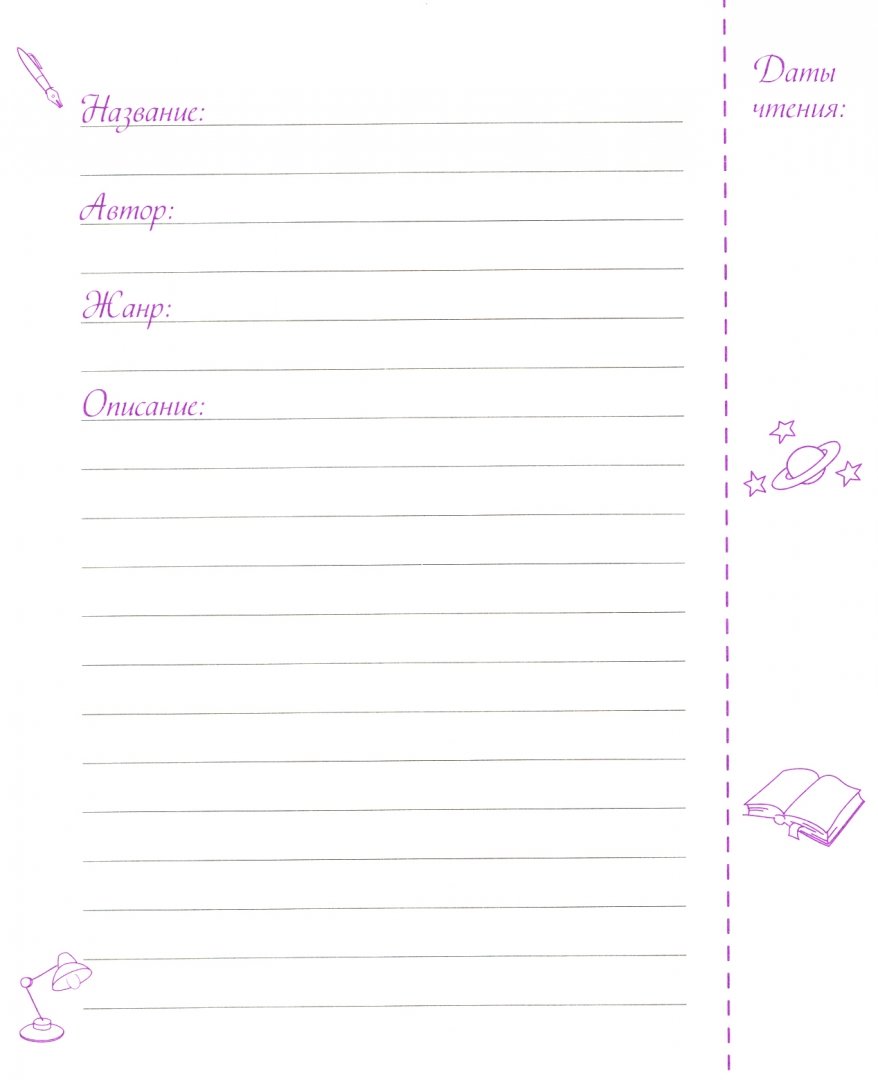 Название:
Автор:
Жанр:
Описание:
Даты
чтения: